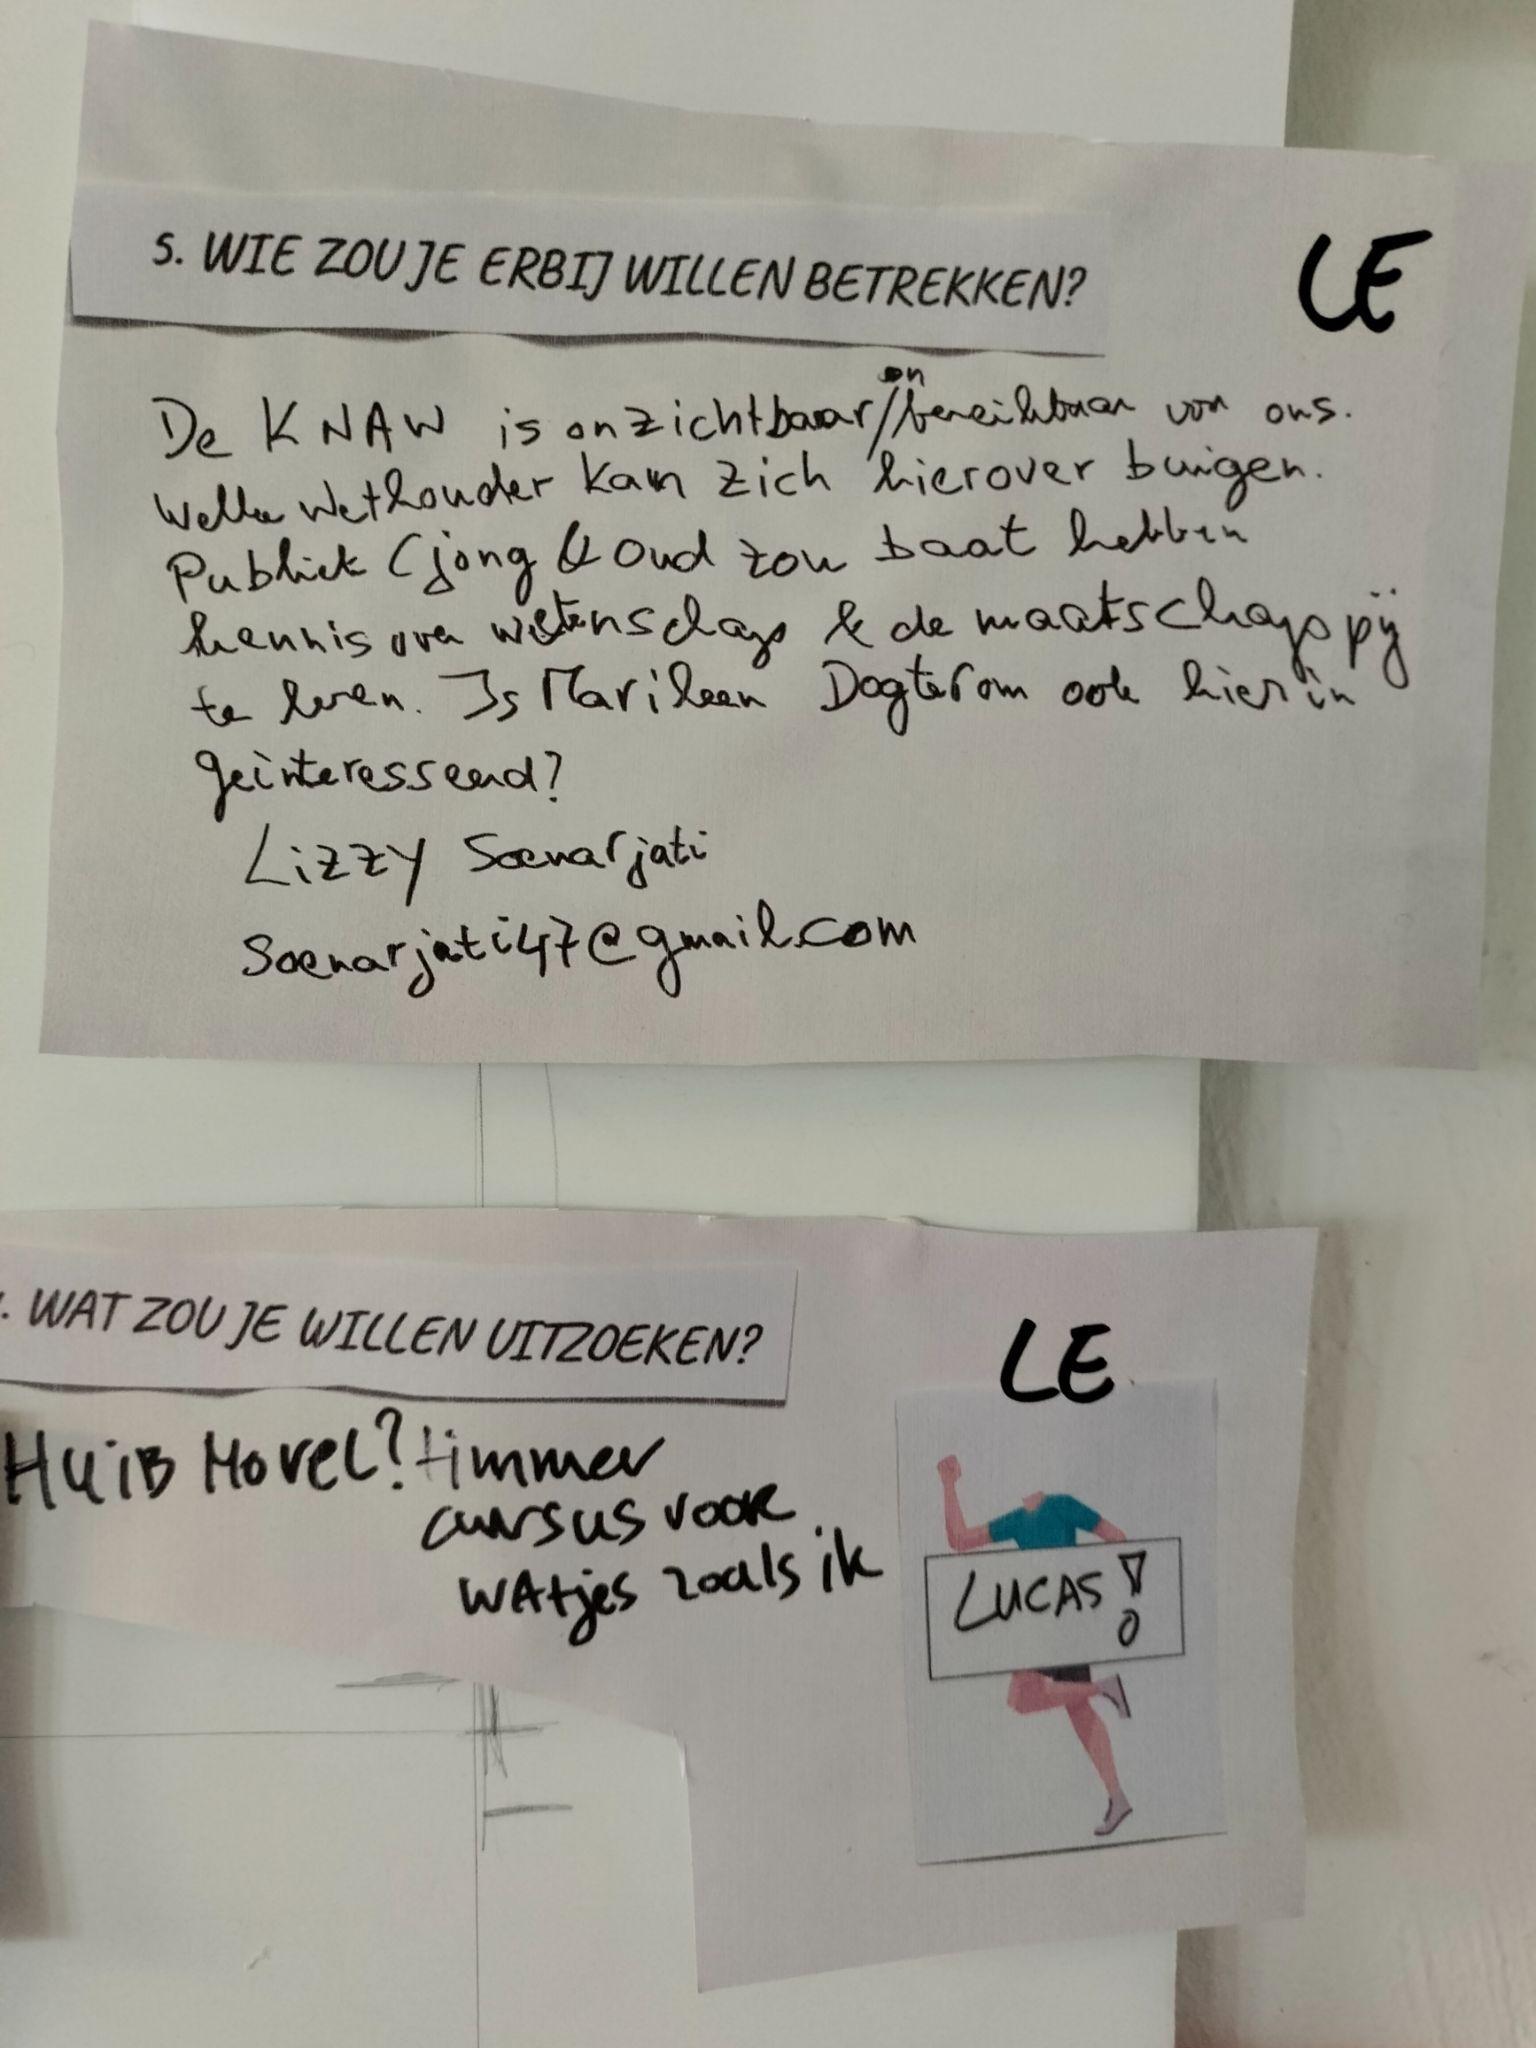 5. WIE ZOU JE ERBIJ WILLEN BETREKKEN?
LE
on
De KNAW is onzichtbaar/bereikbaar voor ons.
Welke wethouder kan zich hierover buigen.
Publiek (jong & oud zou baat hebben
kennis over wetenschap & de maatschappij
te leren. Is Marileen Dogterom ook hierin
geinteresseerd?
Lizzy Soenarjati
Soenarjati47@gmail.com
. WAT ZOU JE WILLEN UITZOEKEN?
LE
HUIB HOVEL? timmer
cursus voor
WAtjes zoals ik
LUCAS!